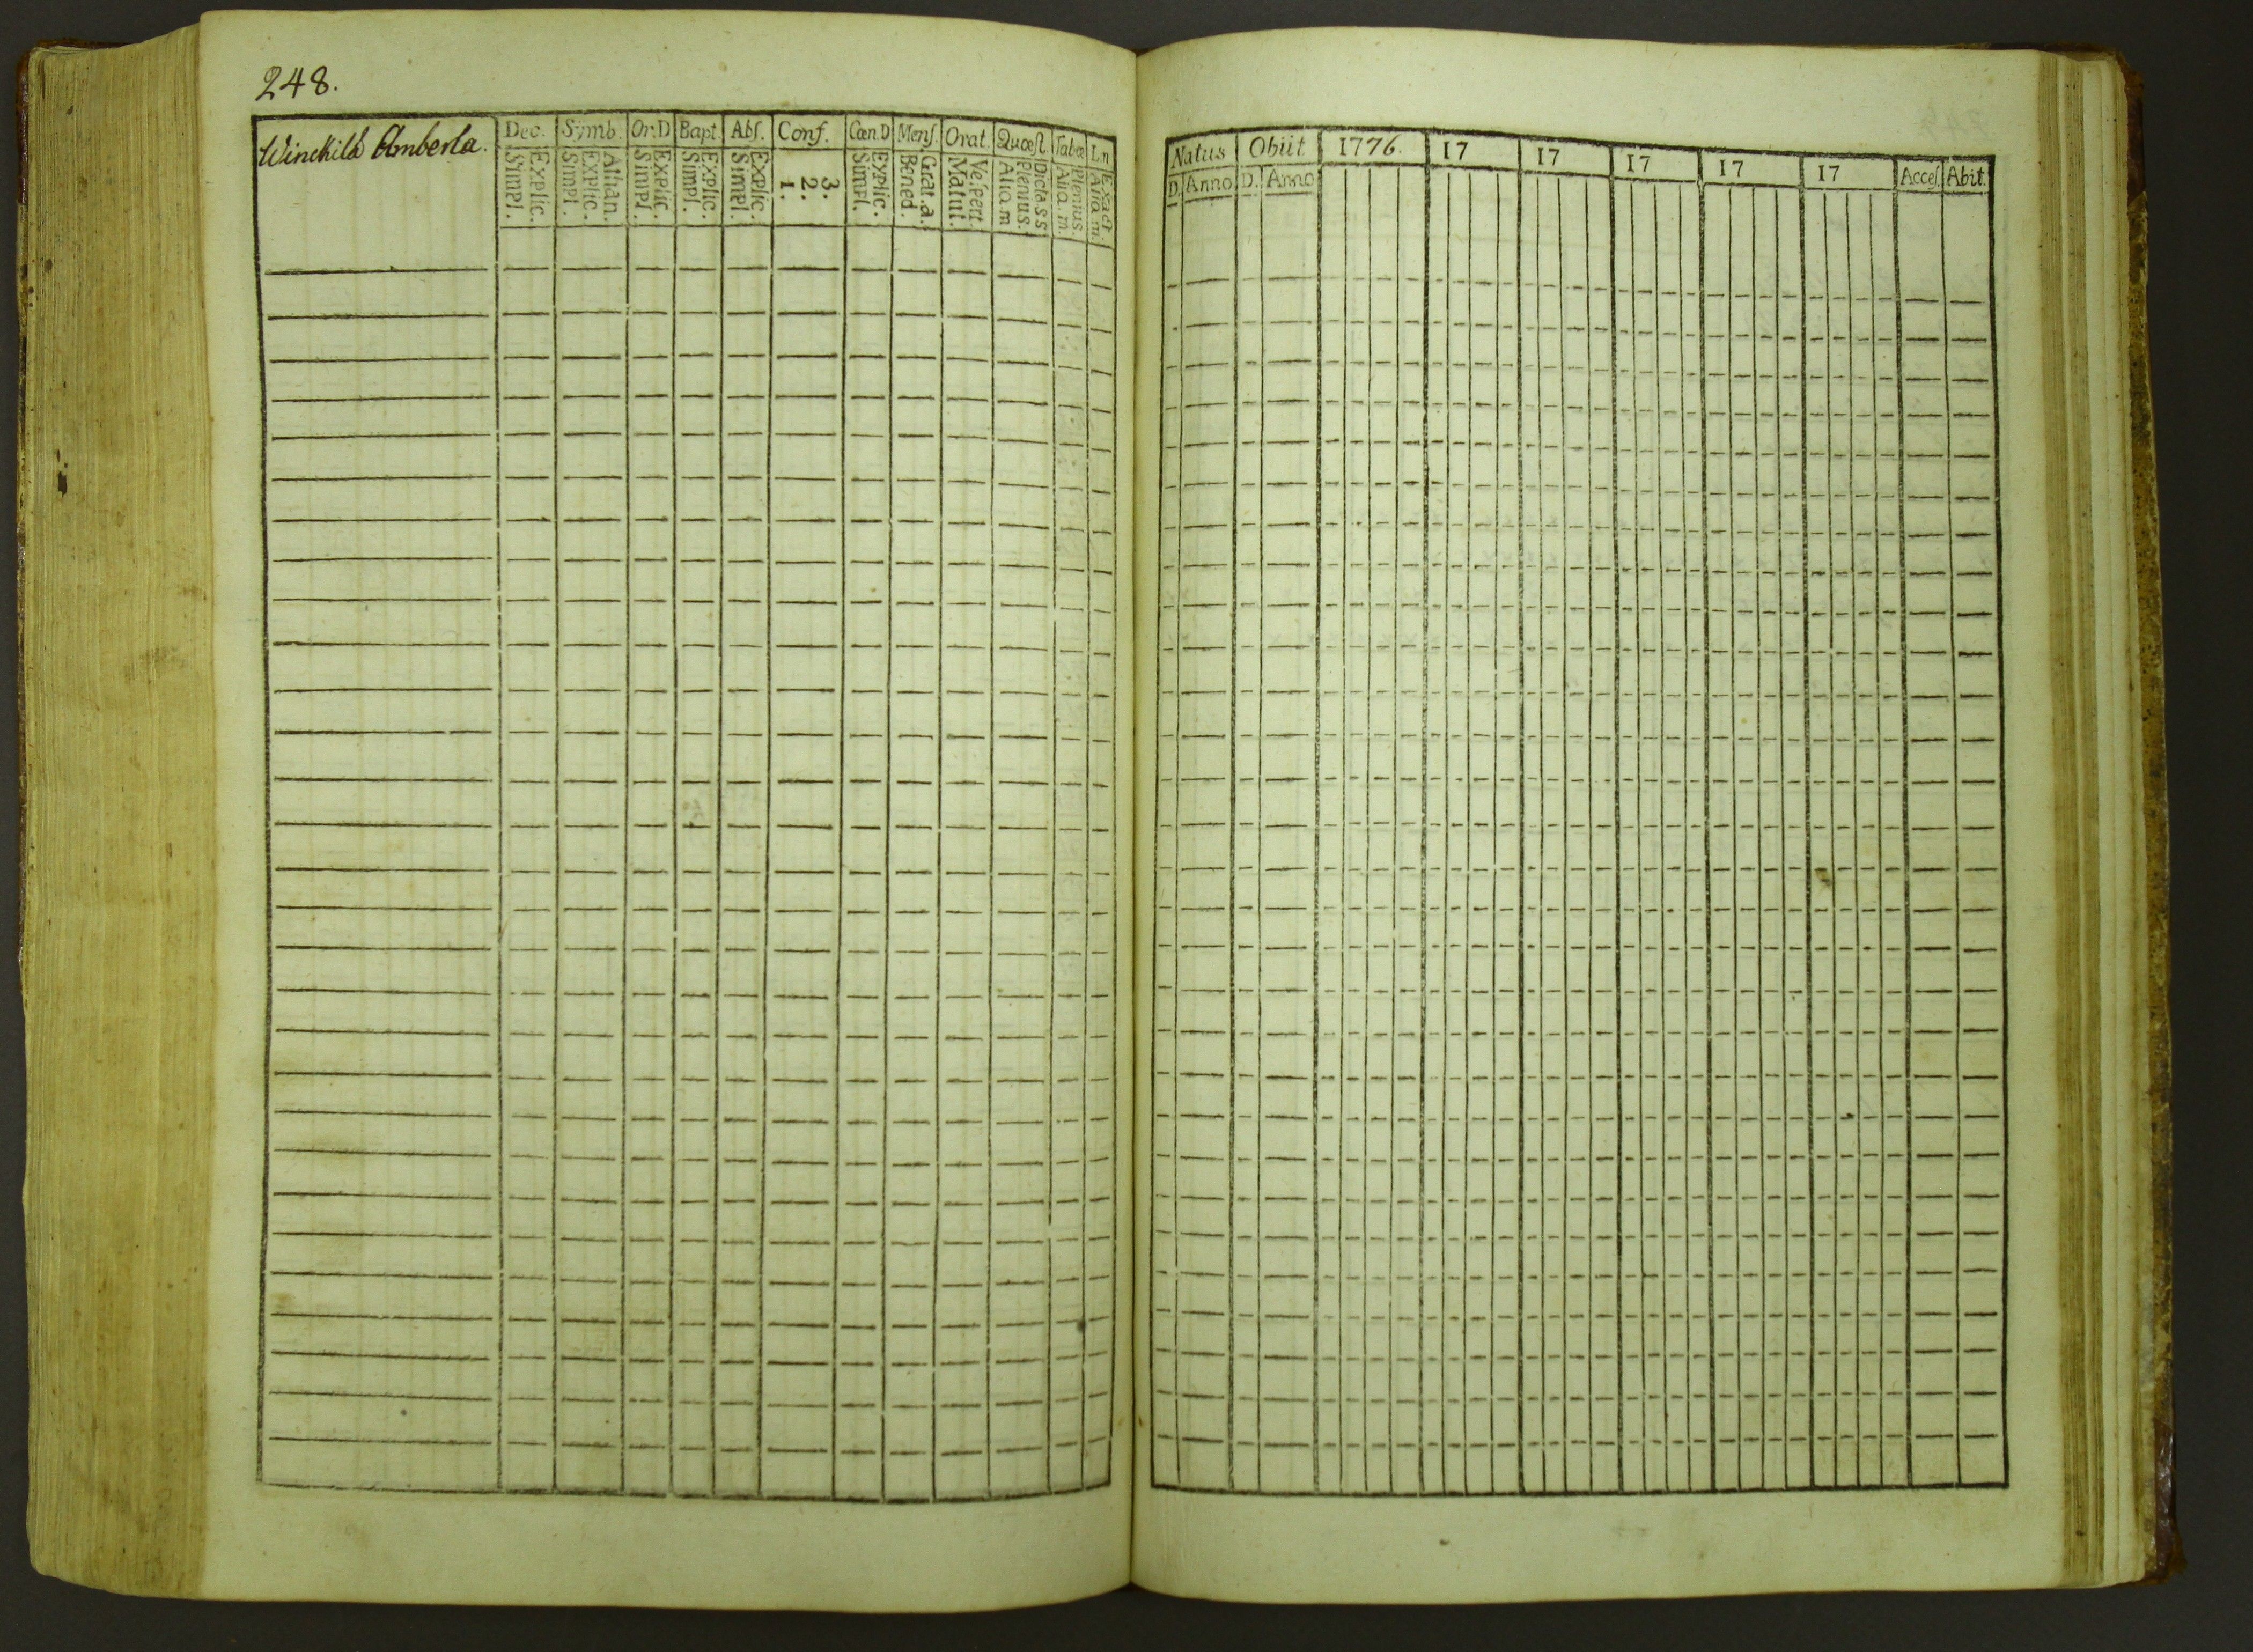 248.
Winckilä Amberla.
Dec. Symb. Or.D Bapt. Abſ. Conf. Cœn.D Menſ. Orat. Quœſt. Tabœ L.n
Explic. Simpl. Athan. Explic. Simpl. Explic. Simpl. Explic. Simpl. Explic. Simpl. 3. 2. 1. Explic. Simpl. Grat.a. Bened. Veſpert. Matut. Dicta s s Plenius. Aliq.m Plenius. Aliq.m. Exact Aliq.m.
Natus Obiit 1776. 17 17 17 17 17 Acceſ. Abit.
D. Anno D. Anno